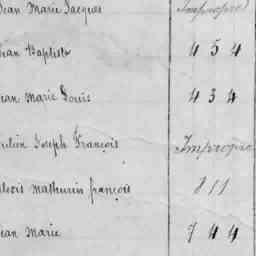 Jean Marie Jacques Impropre
Jean Baptiste 4 5 4
Jean Marie Louis 4 3 4
Joseph François Impropre
Mathurin françois 811
Jean Marie 7 4 4